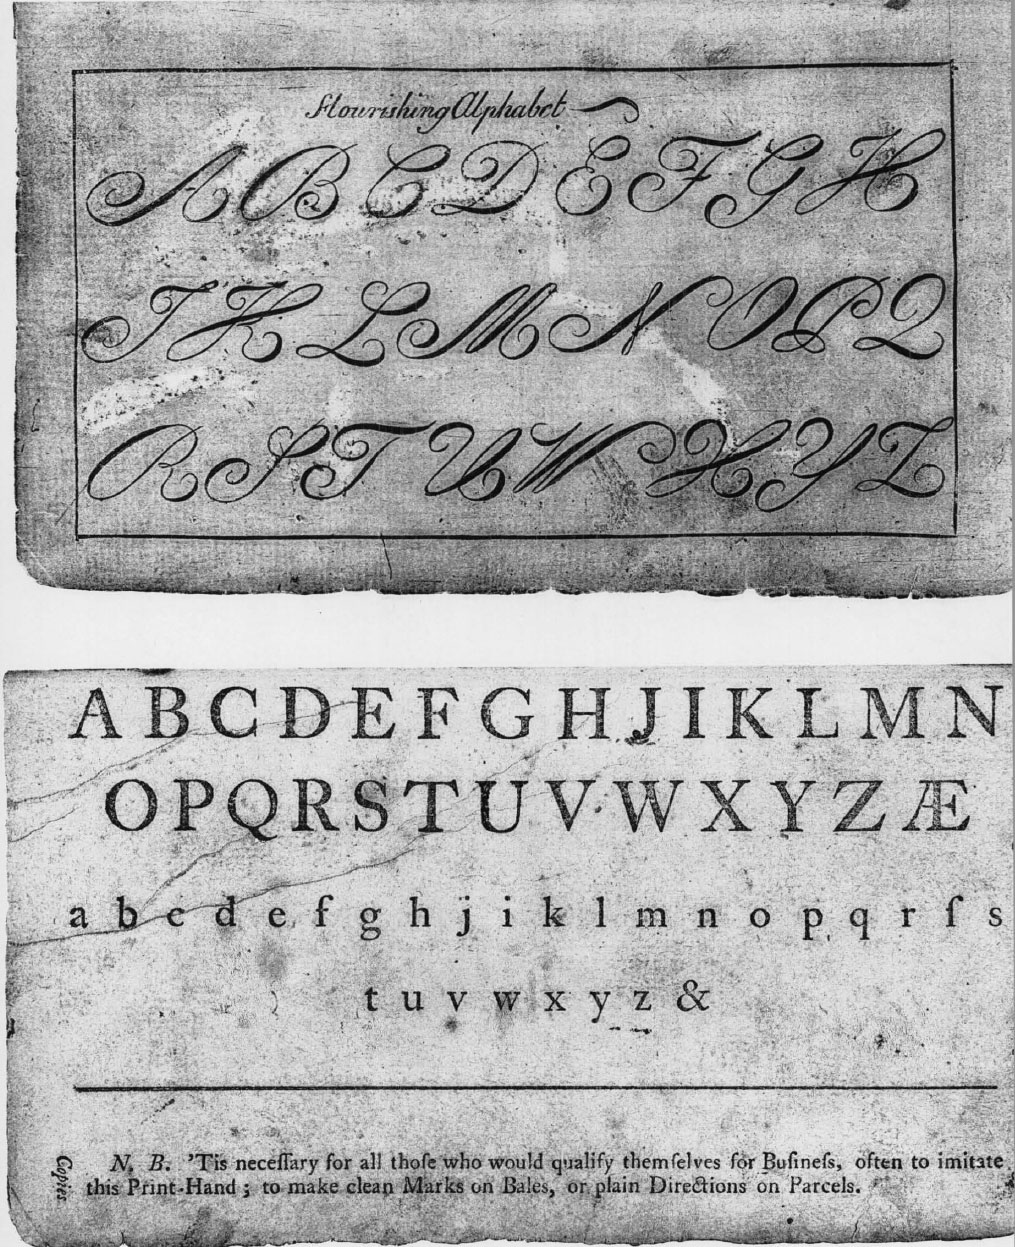 Flourishing Alphabet
A B C D E F G H
I K L M N O P Q
R S T U W X Y Z
A B C D E F G H J I K L M N
O P Q R S T U V W X Y Z Æ
a b c d e f g h j i k l m n o p q r ſ s
t u v w x y z &
N. B. 'Tis neceſſary for all thoſe who would qualify themſelves for Buſineſs, often to imitate
this Print-Hand ; to make clean Marks on Bales, or plain Directions on Parcels.
Copies.